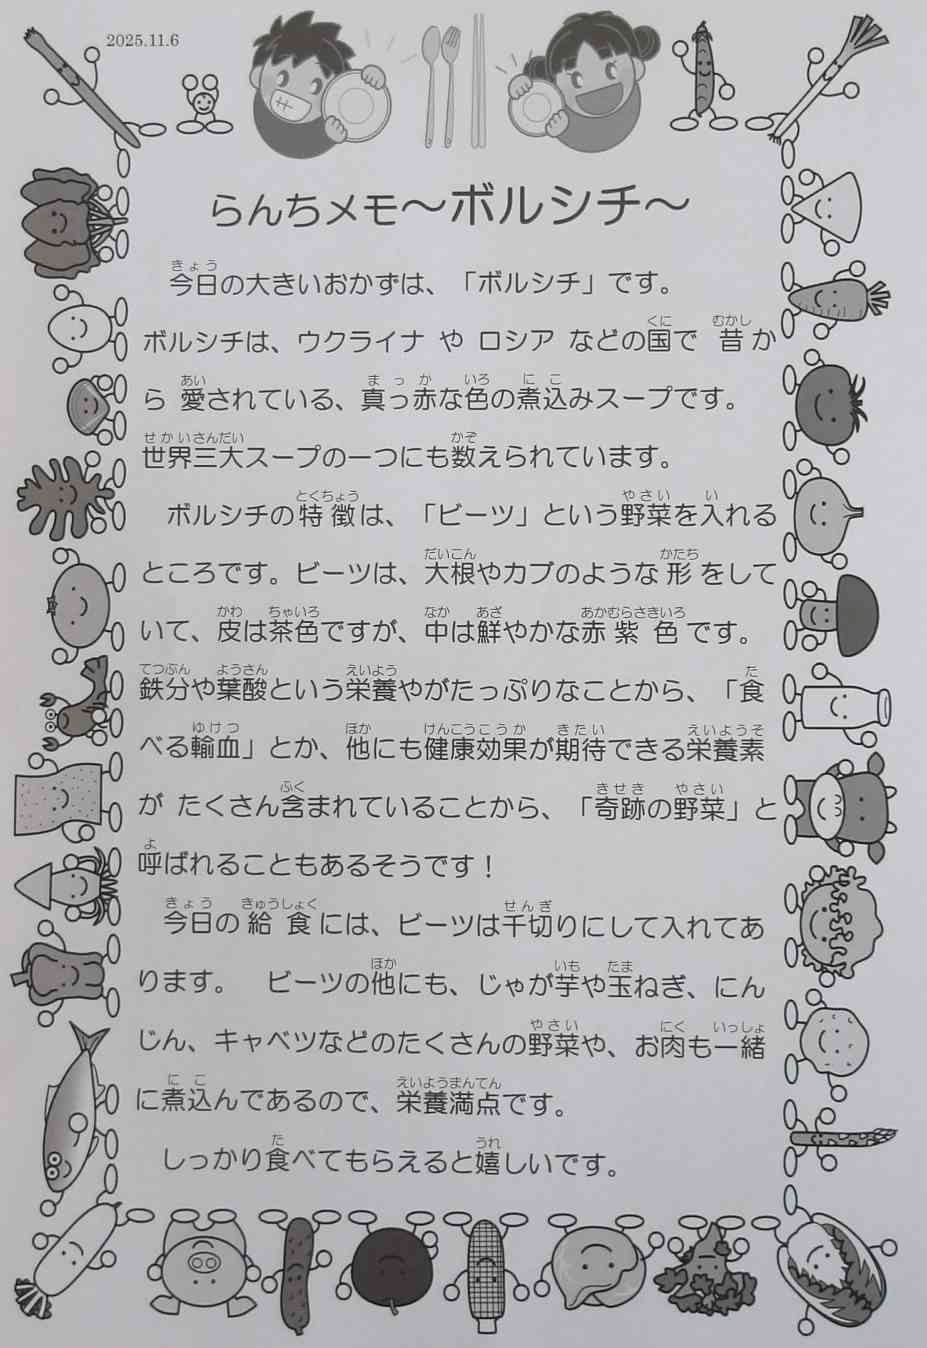 2025.11.6
らんちメモ～ボルシチ～
今日の大きいおかずは、「ボルシチ」です。
ボルシチは、ウクライナ や ロシア などの国で 昔 か
ら 愛されている、真っ赤な色の煮込みスープです。
世界三大スープの一つにも数えられています。
ボルシチの特 徴は、「ビーツ」という野菜を入れる
ところです。ビーツは、大根やカブのような 形 をして
いて、皮は茶色ですが、中は鮮やかな赤 紫 色 です。
鉄分や葉酸という栄養やがたっぷりなことから、「食
べる輸血」とか、他にも健康効果が期待できる栄養素
が たくさん含まれていることから、「奇跡の野菜」と
呼ばれることもあるそうです！
今日の 給 食 には、ビーツは千切りにして入れてあ
ります。 ビーツの他にも、じゃが芋や玉ねぎ、にん
じん、キャベツなどのたくさんの野菜や、お肉も一緒
に煮込んであるので、栄養満点です。
しっかり食べてもらえると嬉しいです。